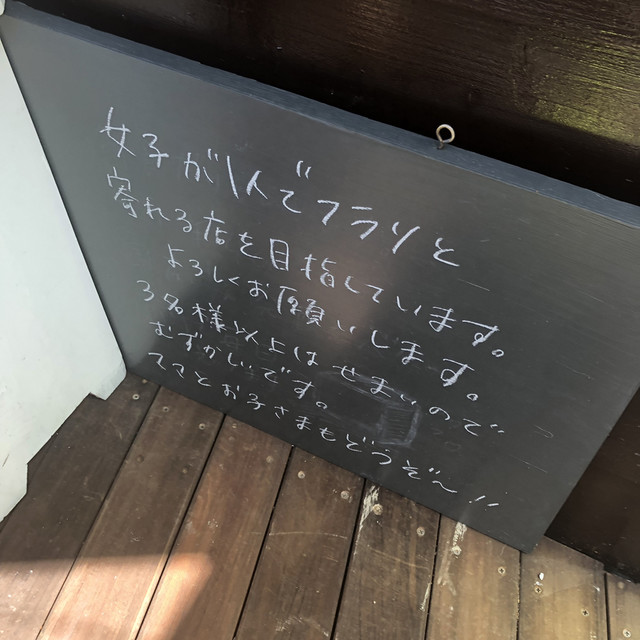 女子が1人でフラリと
寄れる店を目指しています。
よろしくお願いします。
3名様以上はせまいので
むずかしいです。
ママとお子さまもどうぞ〜!!